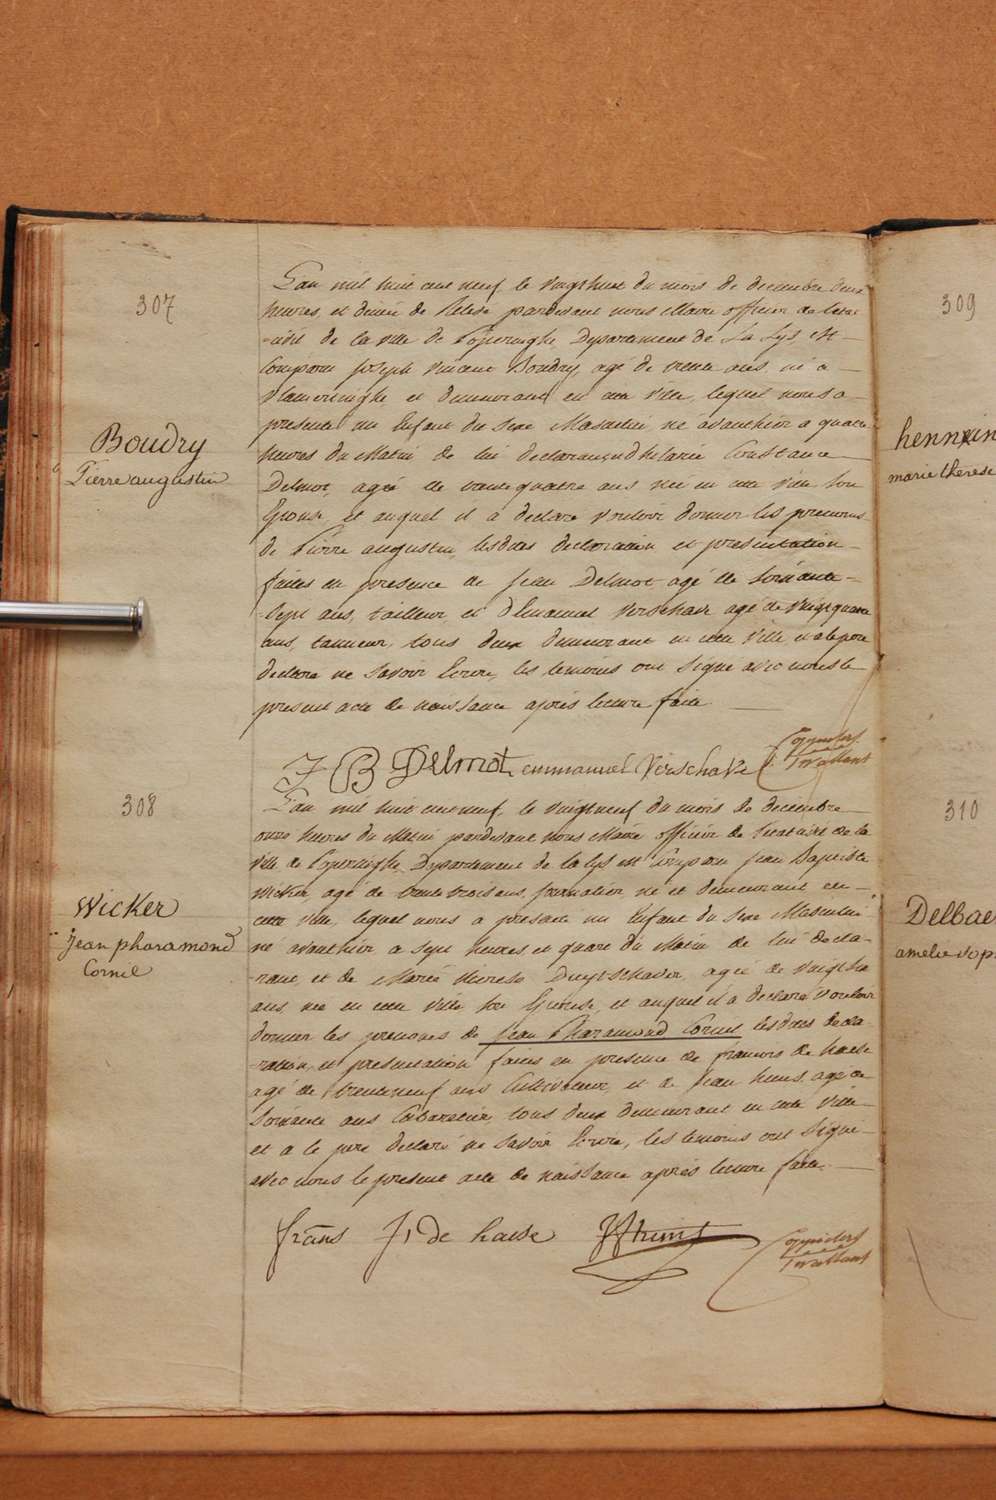 307
Boudry
Pierre augustin
L'an mil huit cent neuf, le vingthuit du mois de decembre deux
heures et demie de relevé pardevant nous Maire officier de l'etat
-civil de la ville de Poperinghe, Departement de La Lys, est
Comparu Joseph Vincent Boudry, agé de trente ans, né à
Vlamertinghe, et demeurant en cette ville, lequel nous a
presenté un Enfant du sexe Masculin, né avanthier a quatre
heures du Matin de lui declarant et d'hilarie Constance
Delmot, agée de trente quatre ans née en cette ville son
Epouse, et auquel il a declaré vouloir donner les prenoms
de Pierre augustin, lesdites declaration et presentation
faites en presence de Jean Delmot agé de soixante-
-sept ans, tailleur et d'Emanuel Verschave agé de vingtquatre
ans, tanneur, tous deux demeurant en cette ville, et a le pere
declaré ne savoir Ecrire, les temoins ont signé avec nous le
present acte de naissance après lecture faite.
J B Delmot emmanuel Verschave
308
Wicker
Jean pharamond
Cornil
L'an mil huit cent neuf, le vingtneuf du mois de decembre
onze heures du Matin pardevant nous Maire officier de l'etat civil de la
ville de Poperinghe, Departement de la Lys est Comparu Jean Baptiste
Wicker, agé de trente trois ans, né et demeurant en
cette ville, lequel nous a presenté un Enfant du sexe Masculin
né avanthier a sept heures et quart du Matin de lui decla-
-rant et de Marie Therese agée de
ans, née en cette ville son Epouse, et auquel il a declaré vouloir
donner les prenoms de Jean Pharamond Cornil lesdites decla-
-ration et presentation faites en presence de francois de haese
agé de trenteneuf ans Cultivateur, et de Jean agé de
soixante ans Cabaretier, tous deux demeurant en cette ville
et a le pere declaré ne savoir Ecrire, les temoins ont signé
avec nous le present acte de naissance après lecture faite.
frans J, de haese
309
hennein
marie therese
310
Delbae
amelie sop